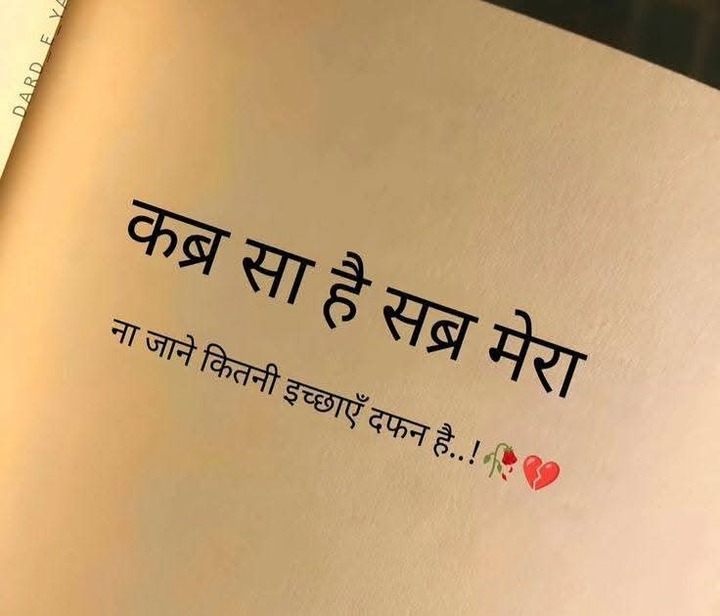 कब्र सा है सब्र मेरा
ना जाने कितनी इच्छाएँ दफन है..!🥀💔
DARD_E_YA